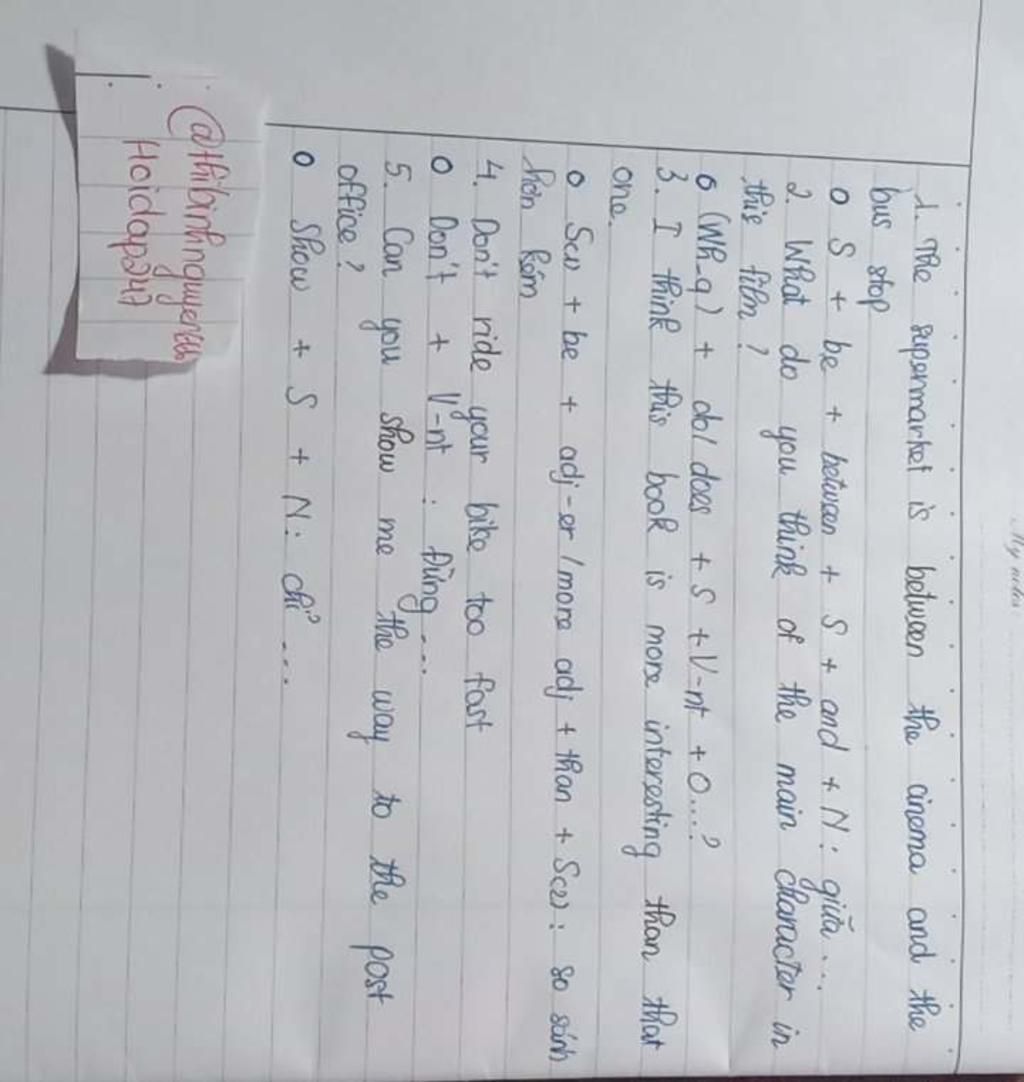 My notes
1. The supermarket is between the cinema and the
bus stop
o S + be + between + S + and + N: giữa ...
2. What do you think of the main character in
this film?
o (Wh_q) + do/does + S + V-nt + O...?
3. I think this book is more interesting than that
one.
o S(1) + be + adj-er/more adj + than + S(2): so sánh
hơn kém
4. Don't ride your bike too fast
o Don't + V-nt : Đừng ...
5. Can you show me the way to the post
office?
o Show + S + N: chỉ ....
Hoidap247